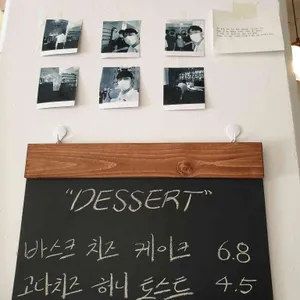 "DESSERT"
바스크 치즈 케이크 6.8
고다치즈 허니 토스트 4.5